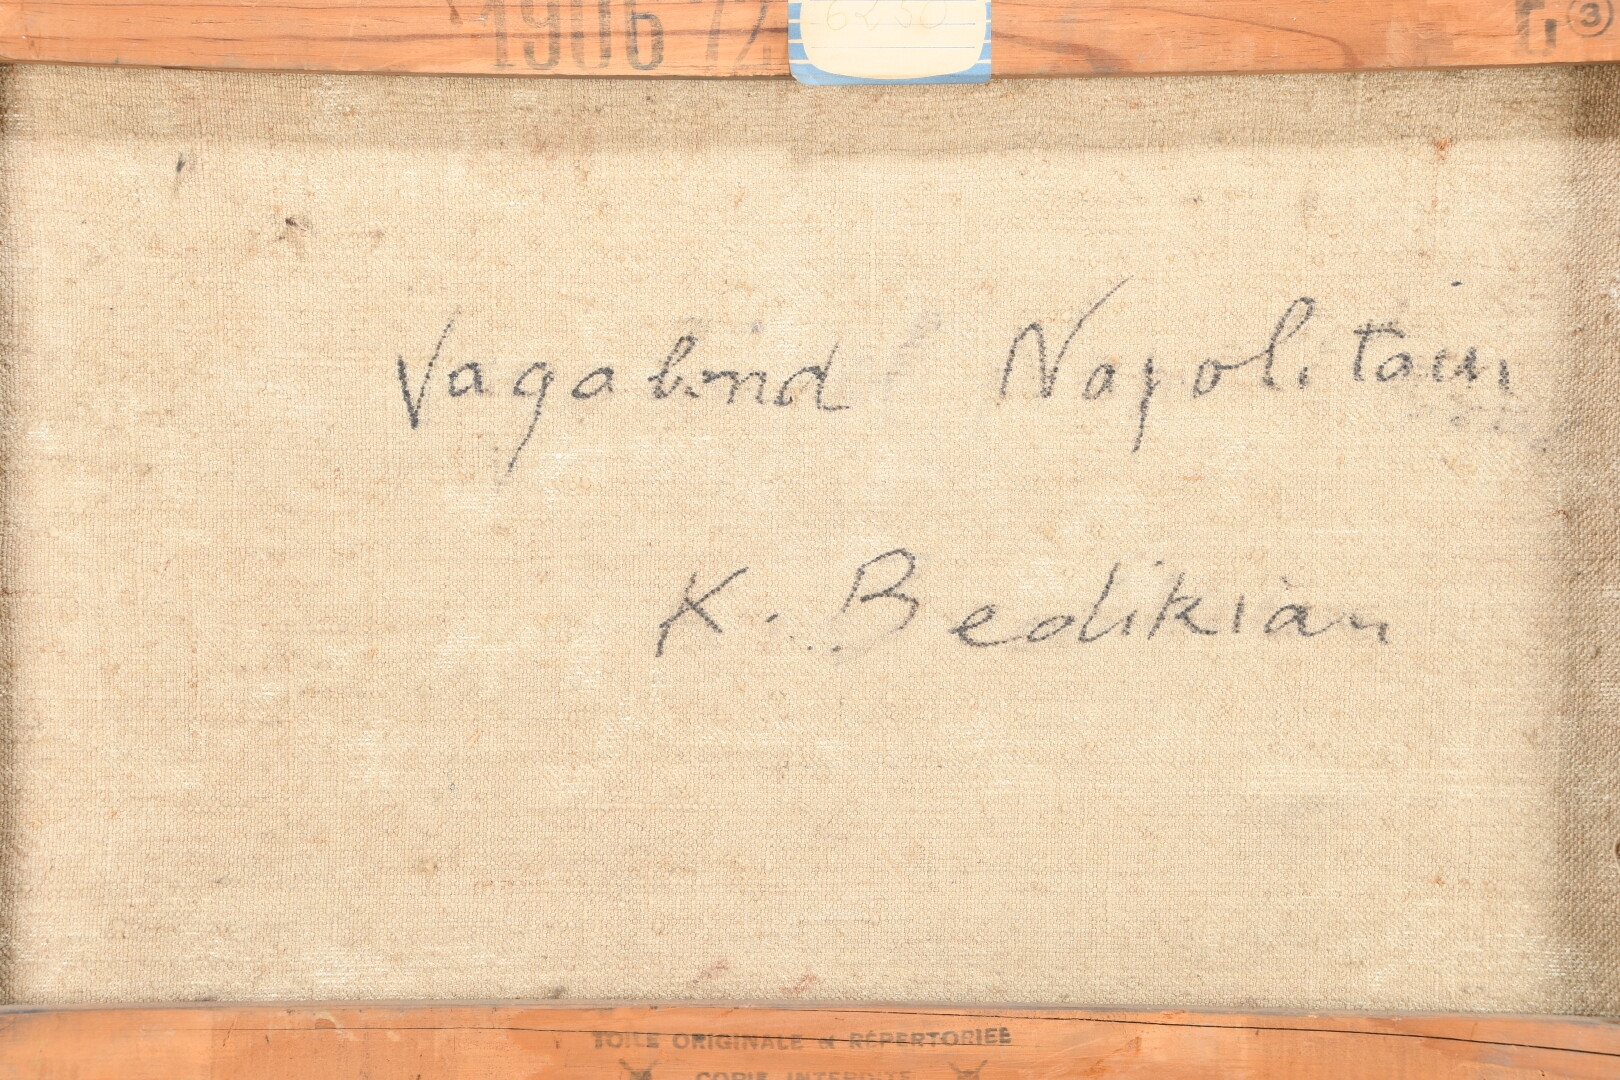 1906 72
6250
G 3
Vagabond Napolitain
K. Bedikian
TOILE ORIGINALE & RÉPERTORIEE
COPIE INTERDITE